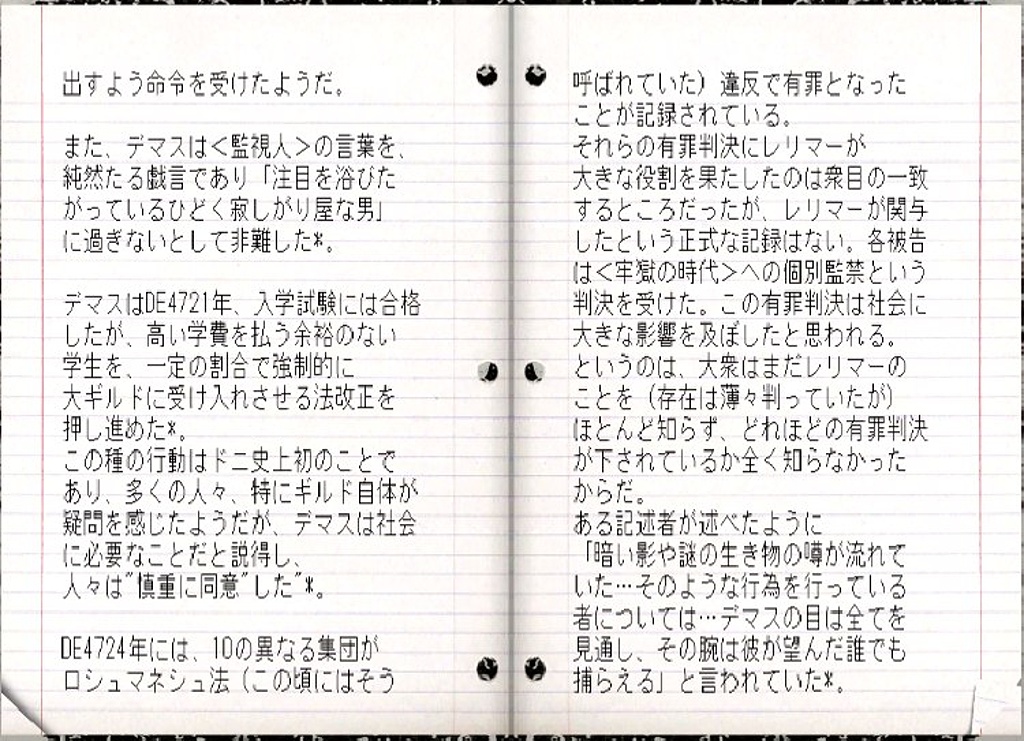 出すよう命令を受けたようだ。
また、デマスは＜監視人＞の言葉を、
純然たる戯言であり「注目を浴びた
がっているひどく寂しがり屋な男」
に過ぎないとして非難した*。
デマスはDE4721年、入学試験には合格
したが、高い学費を払う余裕のない
学生を、一定の割合で強制的に
大ギルドに受け入れさせる法改正を
押し進めた*。
この種の行動はドニ史上初のことで
あり、多くの人々、特にギルド自体が
疑問を感じたようだが、デマスは社会
に必要なことだと説得し、
人々は"慎重に同意"した"*。
DE4724年には、10の異なる集団が
ロシュマネシュ法（この頃にはそう
呼ばれていた）違反で有罪となった
ことが記録されている。
それらの有罪判決にレリマーが
大きな役割を果たしたのは衆目の一致
するところだったが、レリマーが関与
したという正式な記録はない。各被告
は＜牢獄の時代＞への個別監禁という
判決を受けた。この有罪判決は社会に
大きな影響を及ぼしたと思われる。
というのは、大衆はまだレリマーの
ことを（存在は薄々判っていたが）
ほとんど知らず、どれほどの有罪判決
が下されているか全く知らなかった
からだ。
ある記述者が述べたように
「暗い影や謎の生き物の噂が流れて
いた…そのような行為を行っている
者については…デマスの目は全てを
見通し、その腕は彼が望んだ誰でも
捕らえる」と言われていた*。